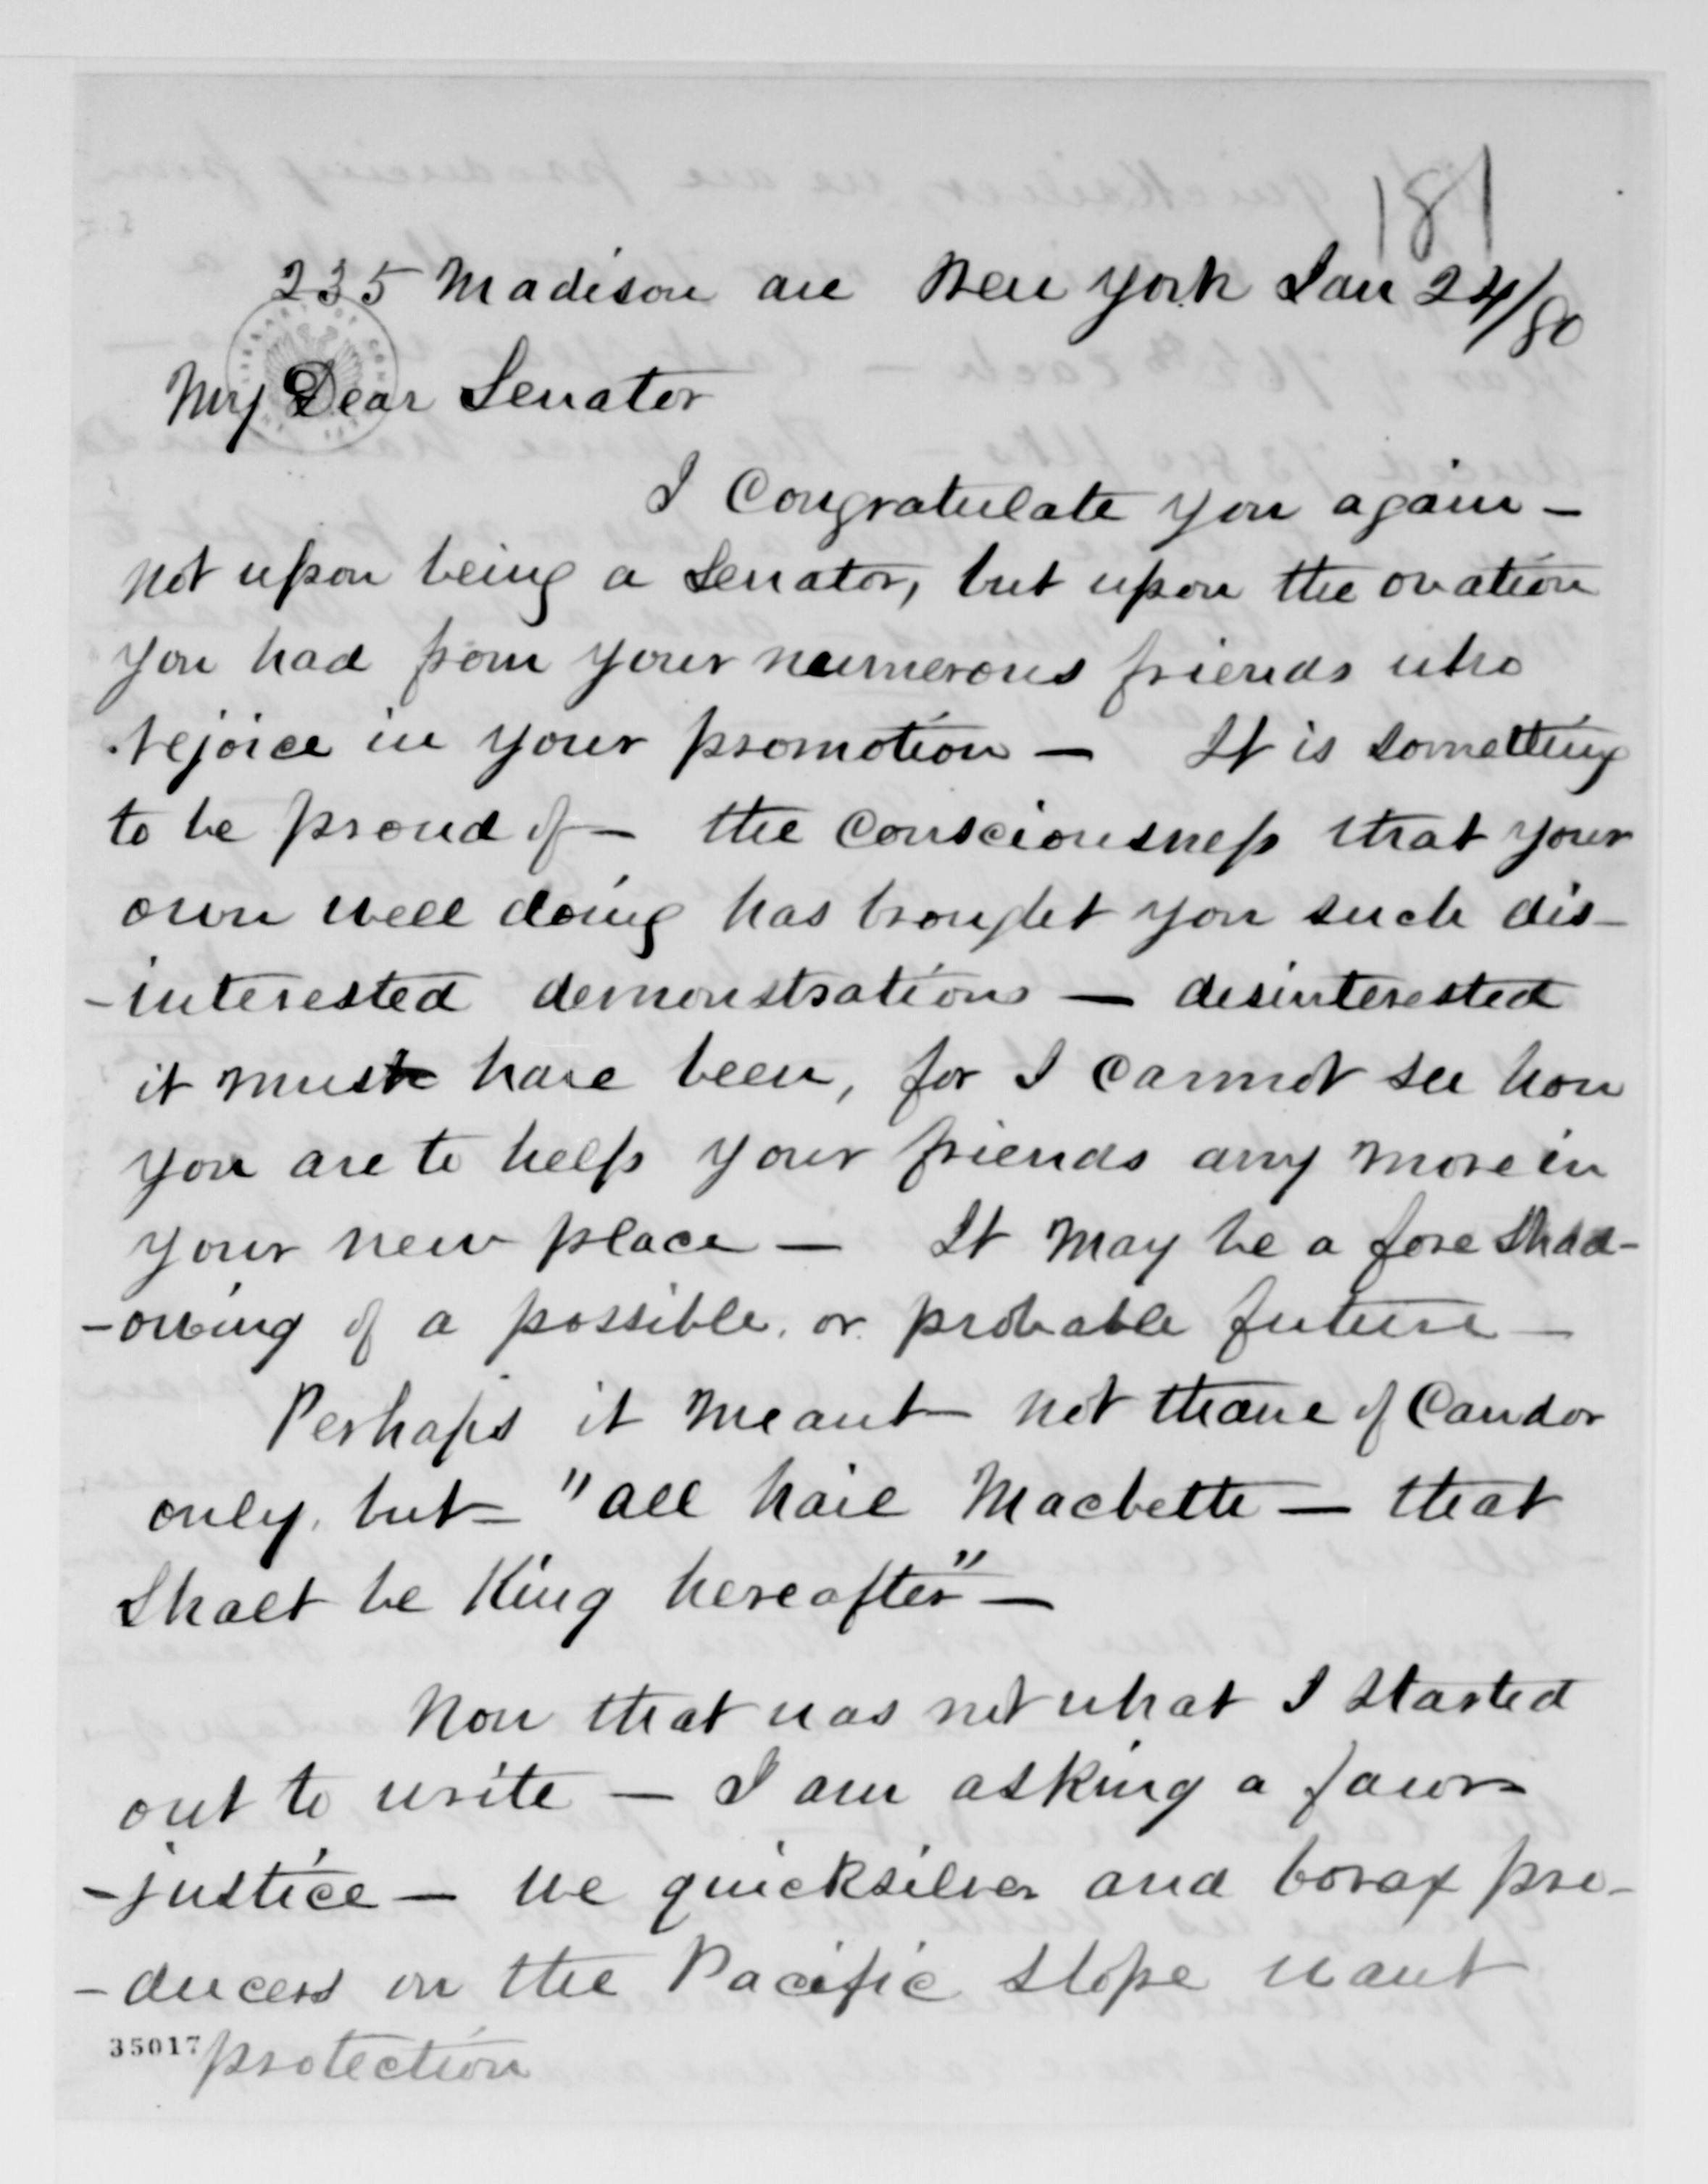 181
235 Madison ave New York Jan 24/80
My Dear Senator
I Congratulate you again —
not upon being a Senator, but upon the ovation
you had from your numerous friends who
rejoice in your promotion — It is something
to be proud of — the Consciousness that your
own well doing has brought you such dis-
-interested demonstrations — disinterested
it must have been, for I cannot see how
you are to help your friends any more in
your new place — It may be a fore shad-
-owing of a possible, or probable future —
Perhaps it meant not thane of Caudor
only, but — "all hail Macbeth — that
Shalt be King hereafter" —
Now that was not what I started
out to write — I am asking a favor
-justice — we quicksilver and borax pro-
-ducers on the Pacific Slope want
35017 protection